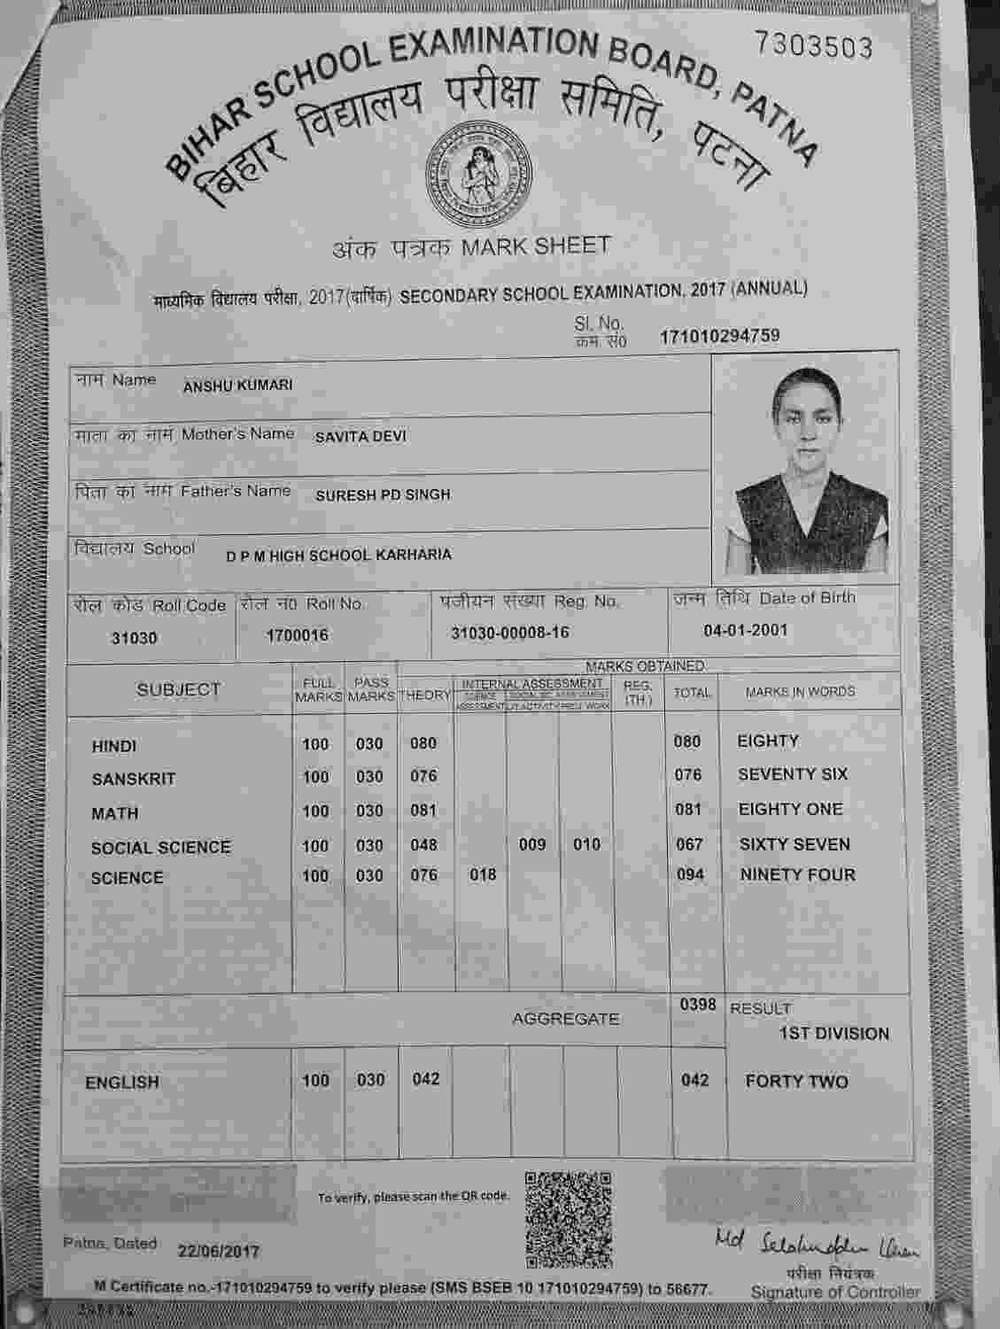 7303503
BIHAR SCHOOL EXAMINATION BOARD, PATNA
बिहार विद्यालय परीक्षा समिति, पटना
अंक पत्रक MARK SHEET
माध्यमिक विद्यालय परीक्षा, 2017(वार्षिक) SECONDARY SCHOOL EXAMINATION, 2017 (ANNUAL)
Sl. No.
क्रम सं0 171010294759
नाम Name ANSHU KUMARI
माता का नाम Mother's Name SAVITA DEVI
पिता का नाम Father's Name SURESH PD SINGH
विद्यालय School D P M HIGH SCHOOL KARHARIA
रोल कोड Roll Code रोल न0 Roll No. पंजीयन संख्या Reg. No. जन्म तिथि Date of Birth
31030 1700016 31030-00008-16 04-01-2001
MARKS OBTAINED
SUBJECT FULL MARKS PASS MARKS THEORY INTERNAL ASSESSMENT REG. (TH.) TOTAL MARKS IN WORDS
HINDI 100 030 080 080 EIGHTY
SANSKRIT 100 030 076 076 SEVENTY SIX
MATH 100 030 081 081 EIGHTY ONE
SOCIAL SCIENCE 100 030 048 009 010 067 SIXTY SEVEN
SCIENCE 100 030 076 018 094 NINETY FOUR
AGGREGATE 0398 RESULT
1ST DIVISION
ENGLISH 100 030 042 042 FORTY TWO
To verify, please scan the QR code.
Patna, Dated 22/06/2017
परीक्षा नियंत्रक
M Certificate no.-171010294759 to verify please (SMS BSEB 10 171010294759) to 56677.
Signature of Controller